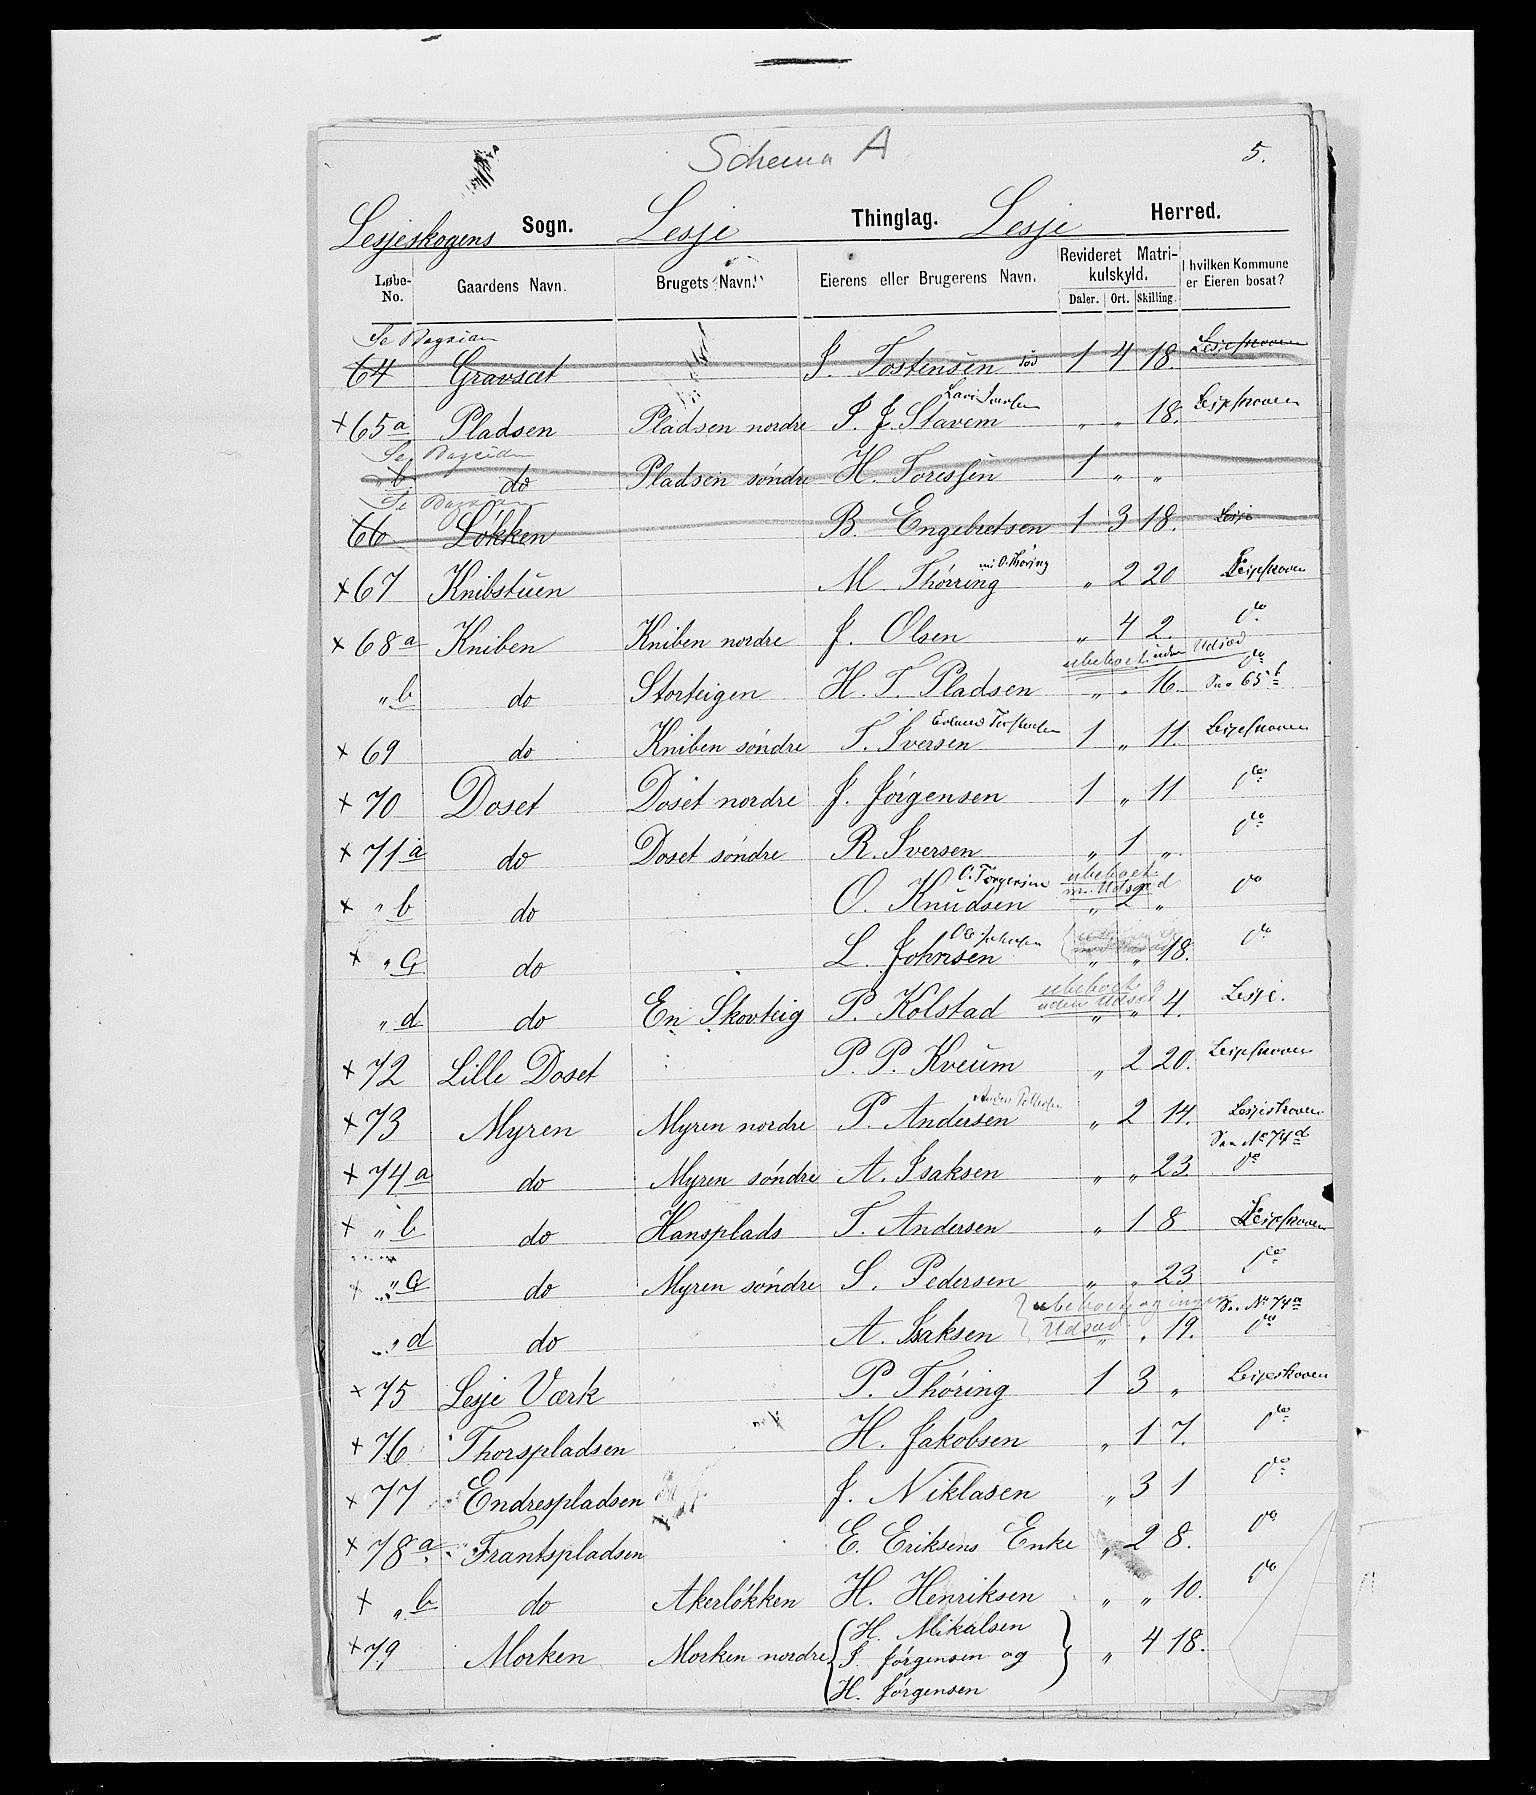 Schema A
5.
Lesjeskogens Sogn. Lesje Thinglag. Lesje Herred.
Løbe-No. Gaardens Navn. Brugets Navn. Eierens eller Brugerens Navn. Revideret Matrikulskyld. Daler. Ort. Skilling. I hvilken Kommune er Eieren bosat?
Se Bagsiden
64 Gravsæt I. Tostensen død 1 4 18. Lesjeskoven
Lars Iversen
× 65a Pladsen Pladsen nordre P. J. Stavem " " 18. Lesjeskoven
Se Bagsiden
" b do Pladsen søndre H. Toressen 1 " "
Se Bagsiden
66 Løkken B. Engebretsen 1 3 18. Lesje
nu O. Thøring
× 67 Knibstuen M. Thørring " 2 20 Lesjeskoven
× 68a Kniben Kniben nordre J. Olsen " 4 2. do
ubeboet uden Udsæd
" b do Storteigen H. T. Pladsen " " 16. do 65b
× 69 do Kniben søndre T. Iversen 1 " 11. Lesjeskoven
× 70 Doset Doset nordre J. Jørgensen 1 " 11 do
× 71a do Doset søndre R. Iversen " 1 " do
O. Torgersen ubeboet m. Udsæd
× " b do O. Knudsen " 2 " do
Ole Johnsen
× " c do L. Johnsen " " 18. do
ubeboet uden Udsæd
" d do En Skovteig P. Kolstad " " 4. Lesje.
× 72 Lille Doset P. P. Kveum " 2 20. Lesjeskoven
× 73 Myren Myren nordre P. Andersen " 2 14. Lesjeskoven
No 74d
× 74a do Myren søndre A. Isaksen " " 23. do
× " b do Hansplads T. Andersen " 1 8 Lesjeskoven
× " c do Myren søndre S. Pedersen " " 23 do
ubeboet og ingen Udsæd No 74a
" d do A. Isaksen " " 19. do
× 75 Lesje Værk P. Thøring 1 3 " Lesjeskoven
× 76 Thorspladsen H. Jakobsen " 1 7. do
× 77 Endrespladsen J. Niklasen " 3 1 do
× 78a Frantspladsen E. Eriksens Enke " 2 8. do
× " b do Akerløkken H. Henriksen " " 10. do
× 79 Morken Morken nordre { H. Mikalsen } " 4 18.
I. Jørgensen og
H. Jørgensen